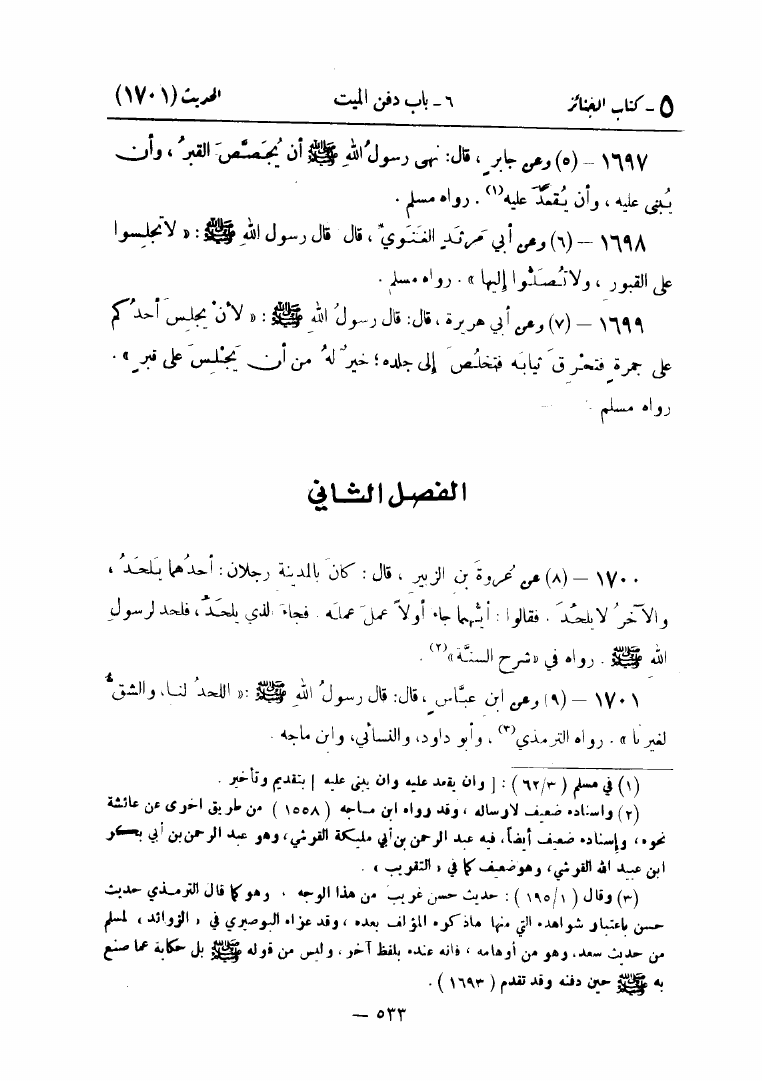 ٥ - كتاب الجنائز ٦ - باب دفن الميت الحديث (١٧٠١)
١٦٩٧ – (٥) وعن جابرٍ ، قال: نهى رسولُ اللهِ ﷺ أن يُجَصَّصَ القبرُ ، وأن
يُبنى عليه ، وأن يُقعَدَ عليه(١) . رواه مسلم .
١٦٩٨ – (٦) وعن أبي مَرثَدٍ الغَنَويّ ، قال قال رسول اللهِ ﷺ : « لا تجلِسوا
على القبورِ ، ولا تُصَلُّوا إليها » . رواه مسلم .
١٦٩٩ – (٧) وعن أبي هريرة ، قال: قال رسولُ اللهِ ﷺ : « لأنْ يجلِسَ أحدُكم
على جمرةٍ فتحْرِقَ ثيابَه فتخلُصَ إلى جلدِه؛ خيرٌ لهُ من أن يَجْلِسَ على قبرٍ » .
رواه مسلم .
الفصل الثاني
١٧٠٠ – (٨) عن عُروةَ بنِ الزبيرِ ، قال : كانَ بالمدينةِ رجلان: أحدُهما يَلحَدُ ،
والآخرُ لا يلحَدُ . فقالوا : أيُّهما جاء أولاً عملَ عملَه . فجاءَ الذي يلحَدُ ، فلحد لرسولِ
اللهِ ﷺ . رواه في «شرح السنَّة»(٢) .
١٧٠١ – (٩) وعن ابن عبَّاسٍ ، قال: قال رسولُ اللهِ ﷺ :« اللحدُ لنا، والشقُّ
لغيرِنا » . رواه الترمذي(٣) ، وأبو داود، والنسائي، وابن ماجه .
(١) في مسلم ( ٦٢/٣ ) : [ وان يقعد عليه وان يبنى عليه ] بتقديم وتأخير .
(٢) واسناده ضعيف لارساله ، وقد رواه ابن ماجه ( ١٥٥٨ ) من طريق اخرى عن عائشة
نحوه، وإسناده ضعيف أيضاً، فيه عبد الرحمن بن أبي مليكة القرشي، وهو عبد الرحمن بن أبي بكر
ابن عبيد الله القرشي، وهو ضعيف كما في « التقريب » .
(٣) وقال ( ١٩٥/١ ) : حديث حسن غريب من هذا الوجه . وهو كما قال الترمذي حديث
حسن باعتبار شواهده التي منها ما ذكره المؤلف بعده ، وقد عزاه البوصيري في « الزوائد » لمسلم
من حديث سعد، وهو من أوهامه ، فانه عنده بلفظ آخر ، وليس من قوله ﷺ بل حكاية عما صنع
به ﷺ حين دفنه وقد تقدم ( ١٦٩٣ ) .
٥٣٣ –